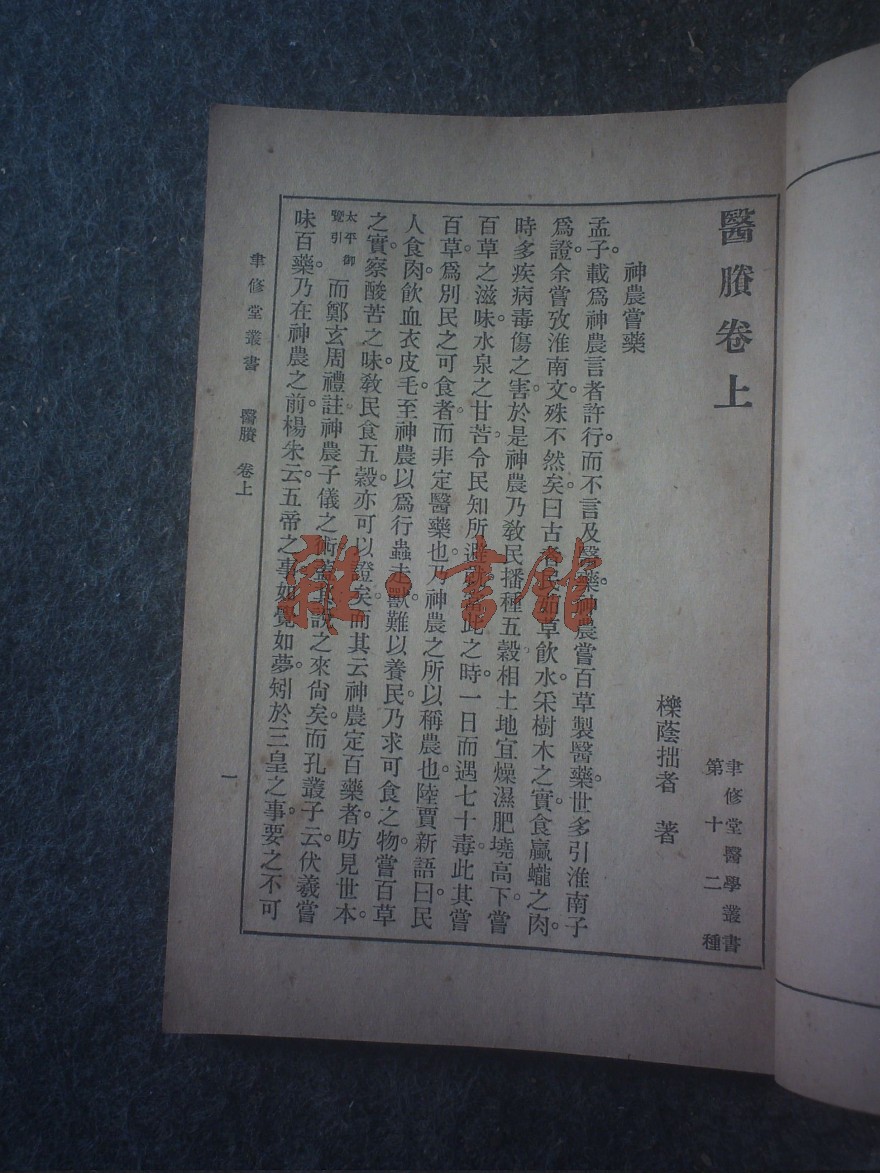 醫賸卷上
聿修堂醫學叢書
第十二種
櫟蔭拙者 著
神農嘗藥
孟子。載爲神農言者許行。而不言及醫藥。神農嘗百草製醫藥。世多引淮南子
爲證余嘗攷淮南文殊不然矣曰古者民茹草飲水。采樹木之實。食蠃蠬之肉。
時多疾病毒傷之害。於是神農乃敎民播種五穀相土地宜燥濕肥墝高下。嘗
百草之滋味水泉之甘苦。令民知所避就當此之時。一日而遇七十毒。此其嘗
百草。爲別民之可食者。而非定醫藥也。乃神農之所以稱農也。陸賈新語曰民
人食肉。飲血衣皮毛。至神農以爲行蟲走獸難以養民。乃求可食之物。嘗百草
之實。察酸苦之味。敎民食五穀。亦可以證矣。而其云神農定百藥者。昉見世本。
太平御覽引 而鄭玄周禮註神農子儀之術。蓋其說之來尙矣。而孔叢子云。伏羲嘗
味百藥。乃在神農之前。楊朱云。五帝之事。如覺如夢。矧於三皇之事。要之不可
聿修堂叢書 醫賸 卷上
一
雜·書館